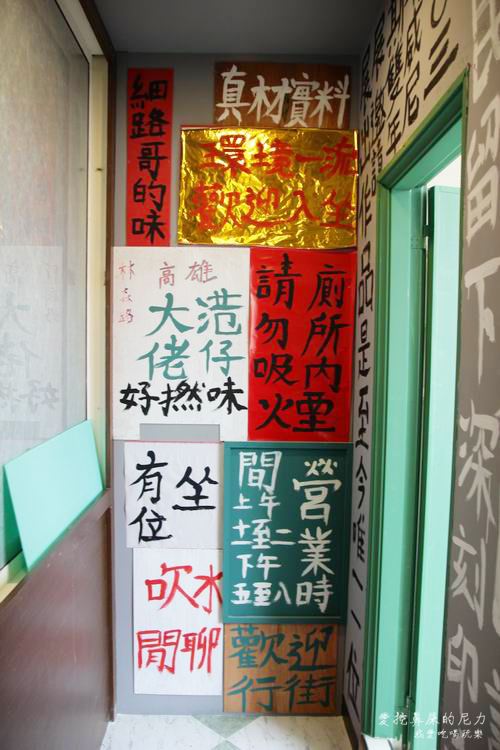 細路哥的味
真材實料
環境一流
歡迎入坐
林森路
高雄
港仔
大佬
好撚味
廁所內煙
請勿吸火
有位
坐
營業時
間
上午
十一至二
下午
五至八
吹水
閒聊
歡迎
行街
作品是至今唯一一位
留下深刻印
愛挖鼻屎的尼力
我愛吃喝玩樂